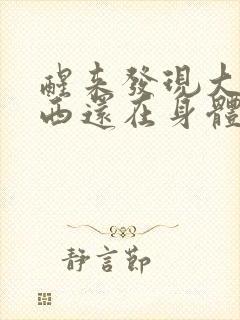 醒来發現大
西還在身體
靜言節